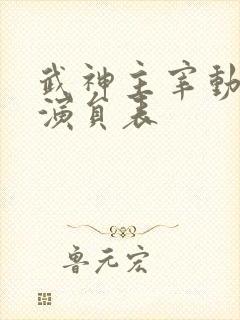 武神主宰動
演員表
魯元宏